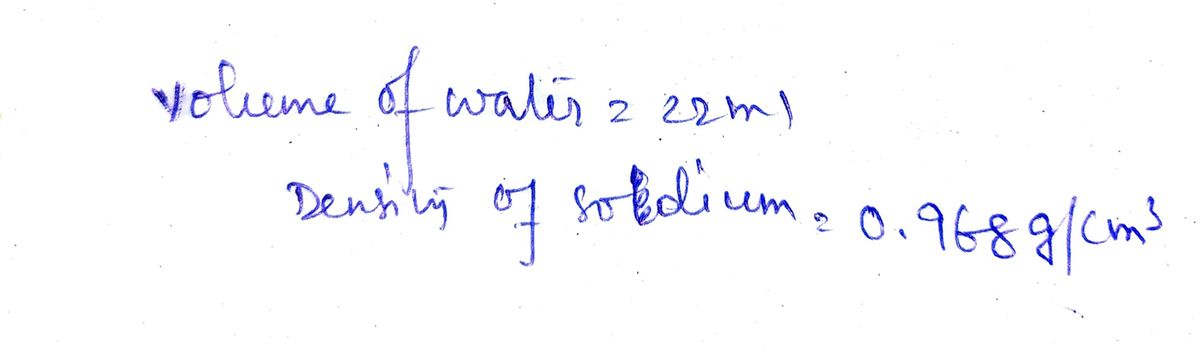 Volume of water = 22ml
Density of sodium = 0.968 g/cm³